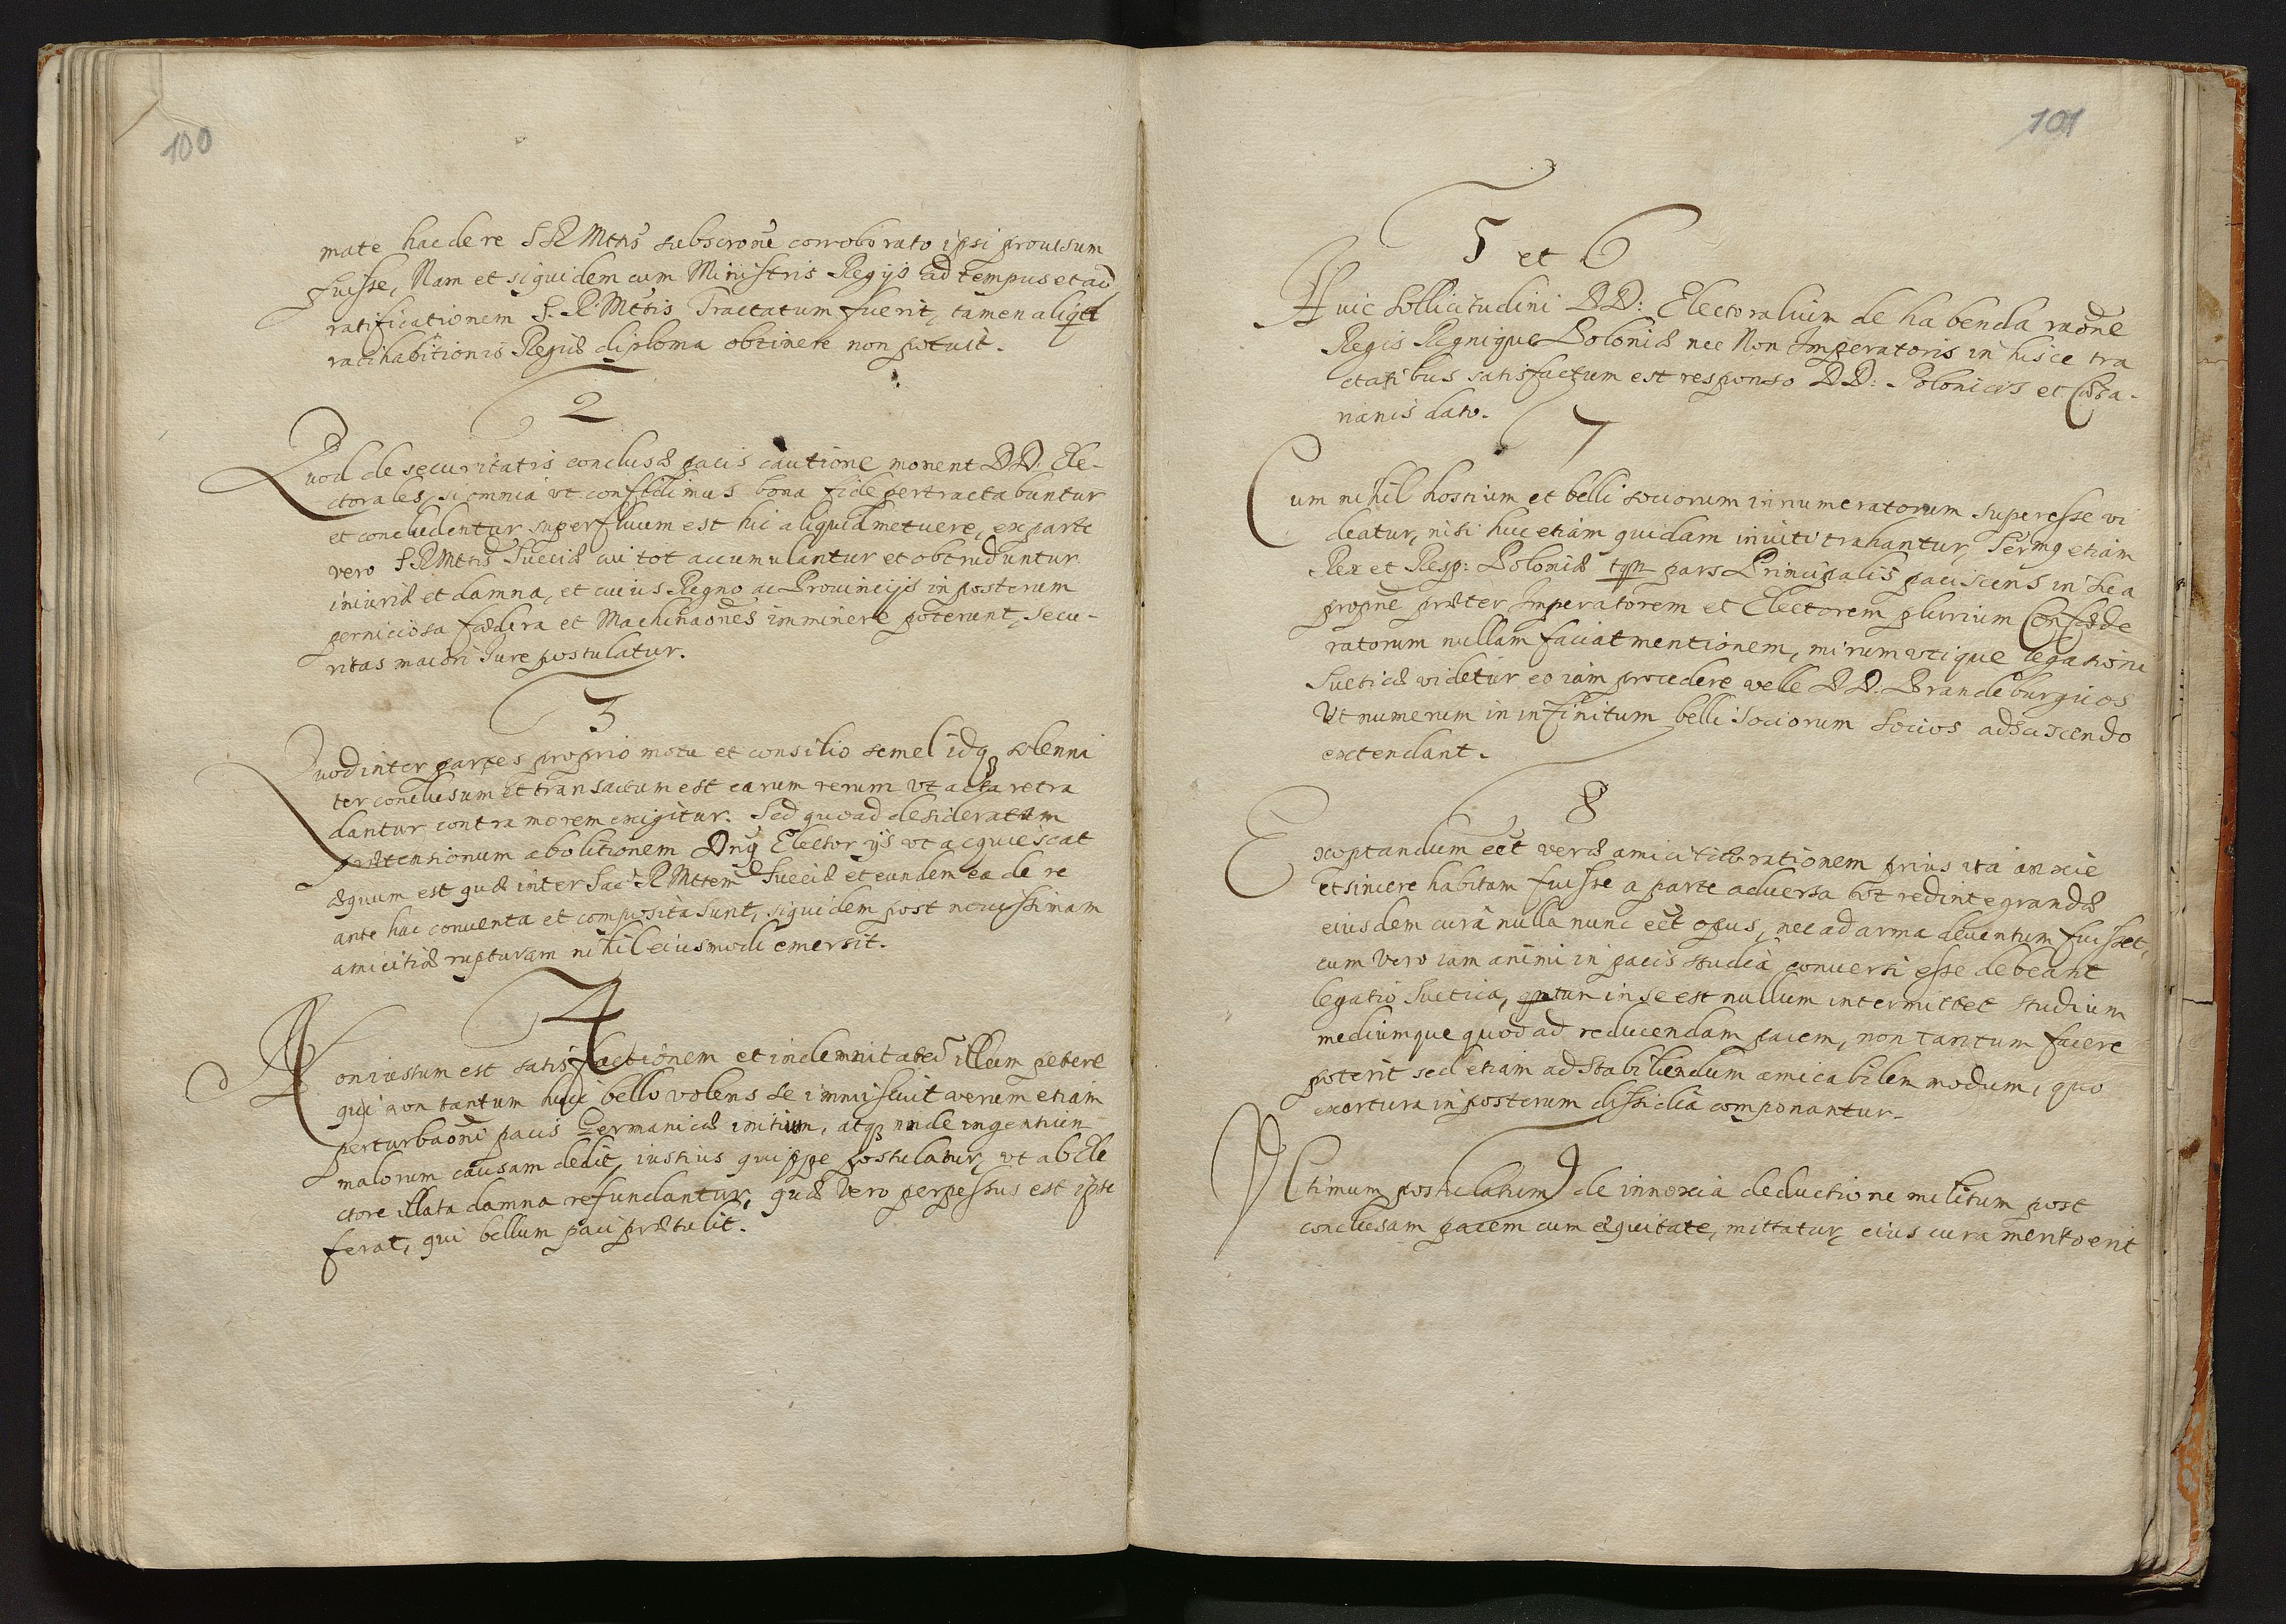 100
mate hac de re S R Mttis subscrone corroborato ipsi prouisum
fuisse, Nam et siquidem cum Ministris Regijs ad tempus et ad
ratificationem S. R. Mttis Tractatum fuerit, tamen aliqd
ratihabitionis Regiæ diploma obtinere non potuit.
2
Quod de securitatis conclusæ pacis cautione monent DD. Ele-
ctorales, si omnia vt confidimus bona fide pertractabuntur
et concludentur superfluum est hic aliquid metuere, ex parte
vero S R Mttis Sueciæ cui tot accumulantur et obtruduntur
iniuriæ et damna, et cuius Regno ac Prouincijs in posterum
perniciosa fœdera et Machinaones imminere poterunt, secu-
ritas maiori Jure postulatur.
3
Quod inter partes proprio motu et consilio semel idq solenni
ter conclusum et transactum est earum rerum vt acta retra
dantur contra morem exigitur. Sed quoad desideratam
prætensionum abolitionem Dnus Elector ijs vt acquiescat
æquum est quæ inter Sac R Mttem Sueciæ et eundem ea de re
ante hac conuenta et composita sunt, siquidem post nouissimam
amicitiæ rupturam nihil eiusmodi emersit.
4
Non iustum est satisfactionem et indemnitatem illum petere
qui non tantum huic bello volens se immiscuit verum etiam
perturbaoni pacis Germanicæ initium, atq inde ingentium
malorum causam dedit, iustius quippe postulatur, vt ab Ele
ctore illata damna refundantur, quæ vero perpessus est ipse
ferat, qui bellum paci prætulit.
101
5 et 6
Huic sollicitudini DD: Electoralium de habenda raone
Regis Regnique Poloniæ nec Non Imperatoris in hisce tra
ctatibus satisfactum est responso DD: Polonicis et Cæsa-
rianis dato.
7
Cum nihil hostium et belli sociorum innumeratorum superesse vi
deatur, nisi huc etiam quidam inuiti trahantur, Sermq etiam
Rex et Resp: Poloniæ tqm pars Principalis paciscens in sua
propne præter Imperatorem et Electorem plurium Confœde
ratorum nullam faciat mentionem, mirum vtique legationi
Sueticæ videtur eo iam procedere velle DD. Brandeburgicos
Vt numerum in infinitum belli Sociorum Socios adsciscendo
extendant.
8
Exoptandum eet veræ amicitiæ rationem prius ita anxie
et sincere habitam fuisse a parte aduersa vt redintegrandæ
eiusdem cura nulla nunc eet opus, nec ad arma deuentum fuisset,
cum Vero iam animi in pacis studia conuersi esse debeant
legatio Suetica, qntum in se est nullum intermittet studium
mediumque quod ad reducendam pacem, non tantum facere
poterit sed etiam ad stabiliendum amicabilem modum, quo
exortura in posterum dissidia componantur.
9
Vltimum postulatum de innoxia deductione militum post
conclusam pacem cum æquitate, mittatur, eius cura merito erit